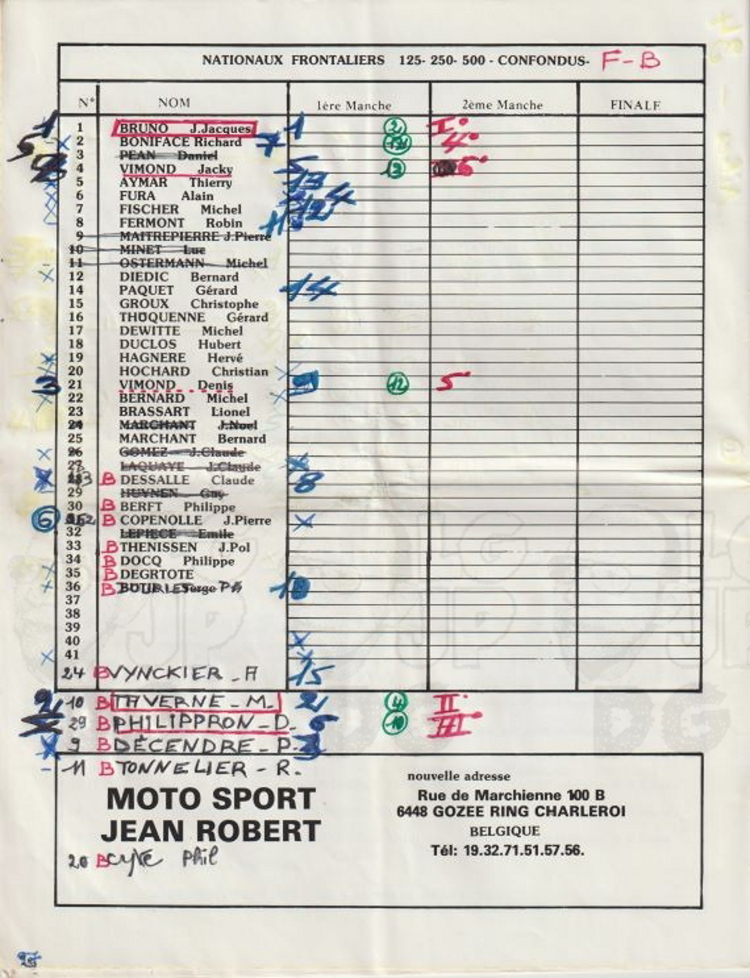 NATIONAUX FRONTALIERS 125- 250- 500 - CONFONDUS- F-B
N° NOM 1ère Manche 2ème Manche FINALE
1 1 BRUNO J.Jacques 1 I°
2 BONIFACE Richard 7 4°
3 PEAN Daniel
4 VIMOND Jacky 5 13 6°
5 AYMAR Thierry 13
6 FURA Alain 4
7 FISCHER Michel 12
8 FERMONT Robin 11
9 MAITREPIERRE J.Pierre
10 MINET Luc
11 OSTERMANN Michel
12 DIEDIC Bernard
14 PAQUET Gérard 14
15 GROUX Christophe
16 THOQUENNE Gérard
17 DEWITTE Michel
18 DUCLOS Hubert
19 HAGNERE Hervé
20 HOCHARD Christian
3 21 VIMOND Denis 12 5°
22 BERNARD Michel
23 BRASSART Lionel
24 MARCHANT J.Noel
25 MARCHANT Bernard
26 GOMEZ J.Claude
27 LAQUAYE J.Claude
B DESSALLE Claude 8
29 HUYNEN Guy
30 B BERFT Philippe
6 B COPENOLLE J.Pierre
32 LEPIECE Emile
33 B THENISSEN J.Pol
34 B DOCQ Philippe
35 B DEGRTOTE
36 B BOURLES Serge 10
37
38
39
40
41
24 B VYNCKIER - A 15
2 10 B TAVERNE - M. 2 4 II°
29 B PHILIPPRON - D. 6 10 III°
9 B DÉCENDRE - P.
11 B TONNELIER - R.
MOTO SPORT
JEAN ROBERT
nouvelle adresse
Rue de Marchienne 100 B
6448 GOZEE RING CHARLEROI
BELGIQUE
Tél: 19.32.71.51.57.56.
20 B Phil
LG
JP
DG